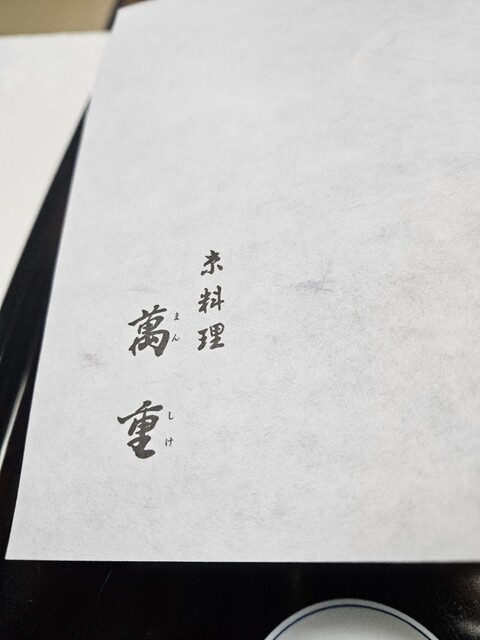 京料理
萬重
まんしげ